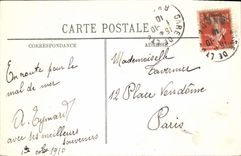 CARTE POSTALE
CORRESPONDANCE
En route pour le
mal de mer
A. Eymard
avec ses meilleurs
souvenirs
1er 1910
Mademoiselle
Tavernier
12 Place Vendôme
Paris
GARE